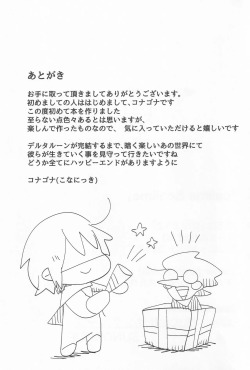 あとがき
お手に取って頂きましてありがとうございます。
初めましての人ははじめまして、コナゴナです
この度初めて本を作りました
至らない点色々あるとは思いますが、
楽しんで作ったものなので、 気に入っていただけると嬉しいです
デルタルーンが完結するまで、暗く楽しいあの世界にて
彼らが生きていく事を見守って行きたいですね
どうか全てにハッピーエンドがありますように
コナゴナ(こなにっき)